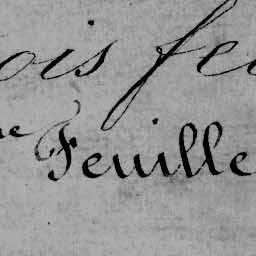 ois fe
Feuille